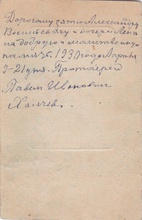 Дорогому зятю Александру
Васильевичу и дочери Лене
на добрую и молитвенную
память. 193 года Марта
21 дня. Протоиерей
Павел Иванович